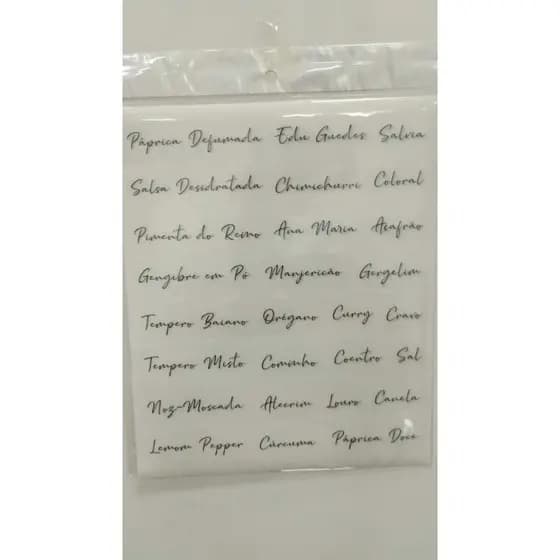 Páprica Defumada Edu Guedes Salvia
Salsa Desidratada Chimichurri Coloral
Pimenta do Reino Ana Maria Açafrão
Gengibre em Pó Manjericão Gergelim
Tempero Baiano Orégano Curry Cravo
Tempero Misto Cominho Coentro Sal
Noz-Moscada Alecrim Louro Canela
Lemom Pepper Cúrcuma Páprica Doce